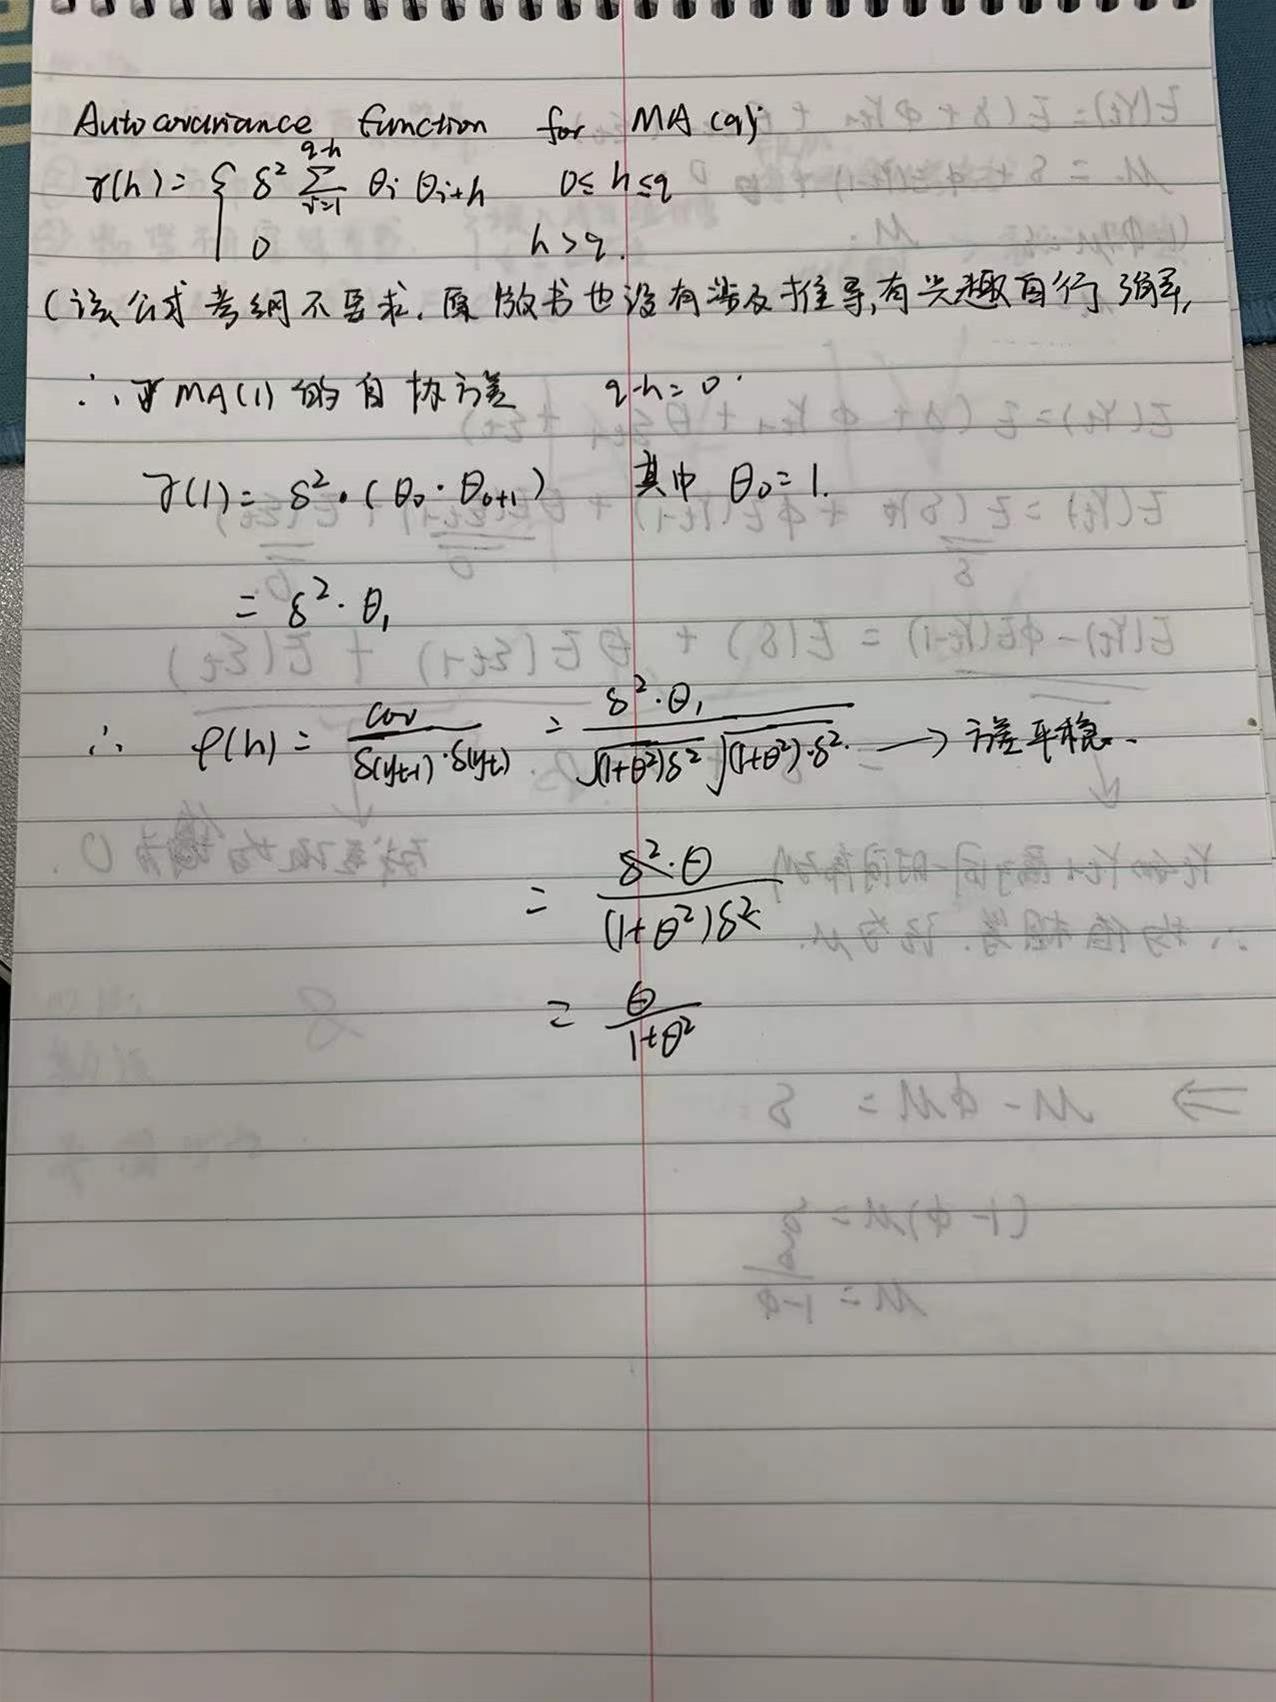 Autocovariance function for MA(q):
γ(h) = { δ² Σ_{i=1}^{q-h} θi θi+h 0≤h≤q
0 h>q.
(该公式考纲不要求,原版书也没有涉及推导,有兴趣自行了解,
∴ MA(1)的自协方差 q-h=0
γ(1) = δ²·(θ₀·θ₀₊₁) 其中 θ₀=1.
= δ²·θ₁
∴ ρ(h) = cov / δ(yt-1)·δ(yt) = δ²·θ₁ / √(1+θ²)δ² √(1+θ²)·δ² → 方差平稳.
= δ²·θ / (1+θ²)δ²
= θ / 1+θ²